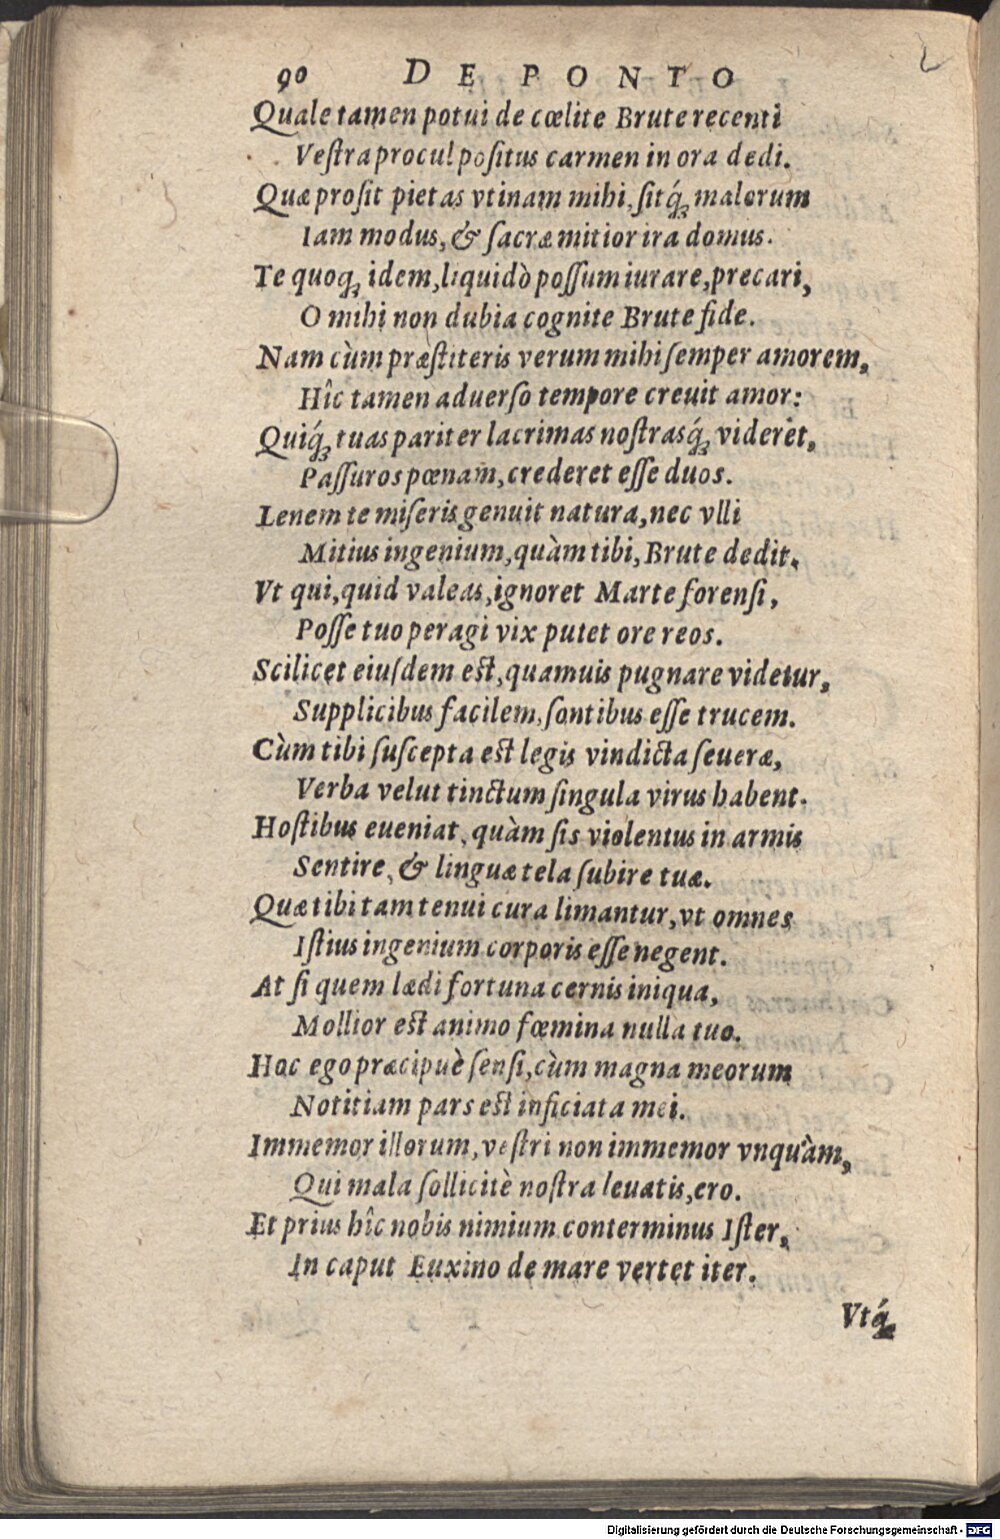 90 DE PONTO
Quale tamen potui de cœlite Brute recenti
Veſtra procul poſitus carmen in ora dedi.
Quæ proſit pietas vtinam mihi, ſitq́ꝫ malorum
Iam modus, & ſacræ mitior ira domus.
Te quoqꝫ idem, liquidò poſſum iurare, precari,
O mihi non dubia cognite Brute fide.
Nam cùm præſtiteris verum mihi ſemper amorem,
Hîc tamen aduerſo tempore creuit amor:
Quiq́ꝫ tuas pariter lacrimas noſtrasq́ꝫ videret,
Paſſuros pœnam, crederet eſſe duos.
Lenem te miſeris genuit natura, nec vlli
Mitius ingenium, quàm tibi, Brute dedit.
Vt qui, quid valeas, ignoret Marte forenſi,
Poſſe tuo peragi vix putet ore reos.
Scilicet eiuſdem eſt, quamuis pugnare videtur,
Supplicibus facilem, ſontibus eſſe trucem.
Cùm tibi ſuſcepta eſt legis vindicta ſeueræ,
Verba velut tinctum ſingula virus habent.
Hoſtibus eueniat, quàm ſis violentus in armis
Sentire, & linguæ tela ſubire tuæ.
Quæ tibi tam tenui cura limantur, vt omnes
Iſtius ingenium corporis eſſe negent.
At ſi quem lædi fortuna cernis iniqua,
Mollior eſt animo fœmina nulla tuo.
Hoc ego præcipuè ſenſi, cùm magna meorum
Notitiam pars eſt inficiata mei.
Immemor illorum, veſtri non immemor vnquàm,
Qui mala ſollicitè noſtra leuatis, ero.
Et prius hîc nobis nimium conterminus Iſter,
In caput Euxino de mare vertet iter.
Vtq́ꝫ
Digitalisierung gefördert durch die Deutsche Forschungsgemeinschaft - DFG